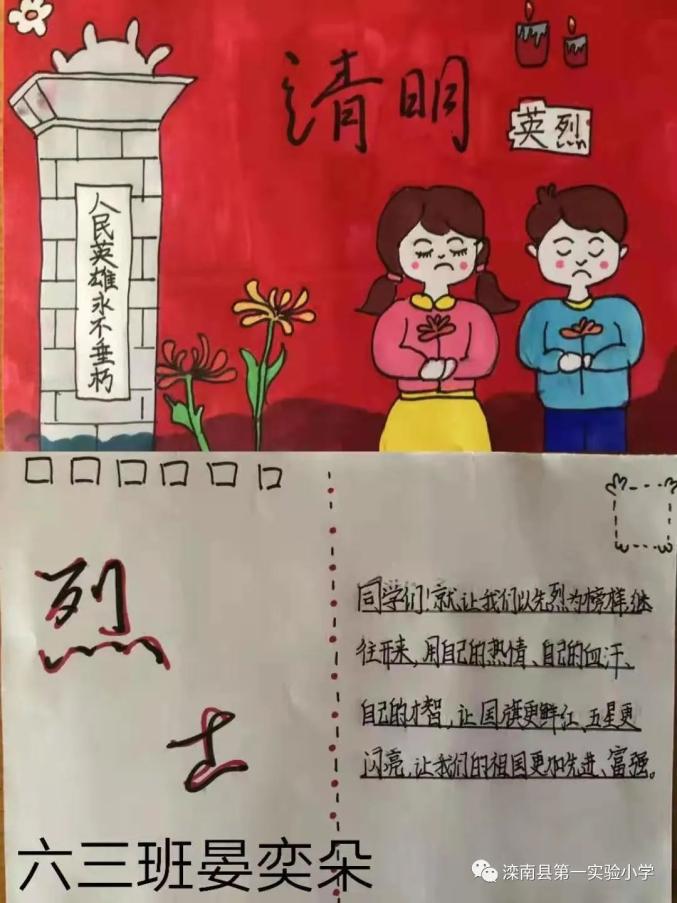 清明
英烈
人民英雄永不垂朽
烈
士
同学们！就让我们以先烈为榜样,继
往开来,用自己的热情、自己的血汗、
自己的才智,让国旗更鲜红、五星更
闪亮,让我们的祖国更加先进、富强。
六三班晏奕朵
滦南县第一实验小学